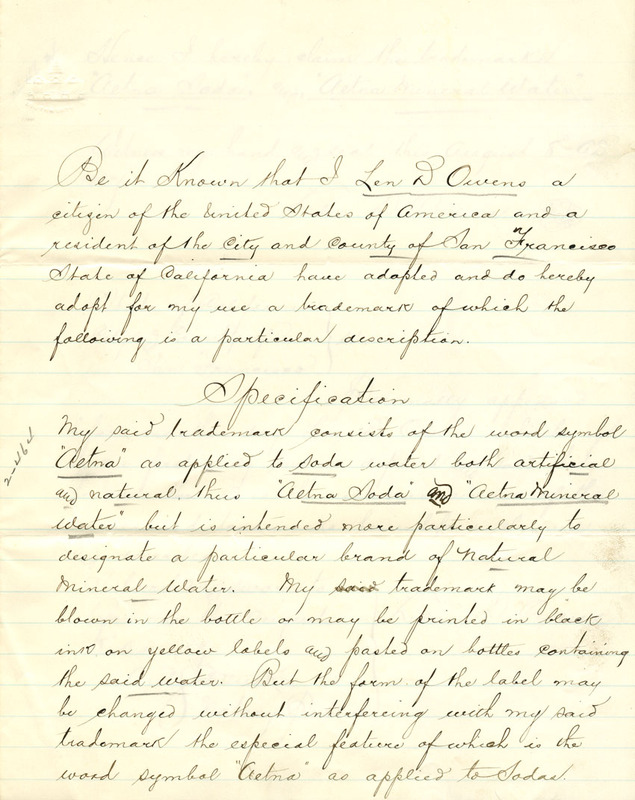 Be it Known that I Len D Owens a
citizen of the United States of America and a
resident of the City and County of San Francisco
State of California have adopted and do hereby
adopt for my use a trademark of which the
following is a particular description.
Specification
My said trademark consists of the word symbol
"Aetna" as applied to soda water both artificial
and natural, thus "Aetna Soda" and "Aetna Mineral
Water" but is intended more particularly to
designate a particular brand of Natural
Mineral Water. My said trademark may be
blown in the bottle or may be printed in black
ink on yellow labels and pasted on bottles containing
the said water. But the form of the label may
be changed without interfering with my said
trademark the especial feature of which is the
word symbol "Aetna" as applied to Sodas.
2-464